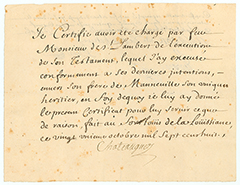 Je Certifie avoir été chargé par feu
Monieur des Jambert de l'execution
de son Testament, lequel J'ay execusé
conformement a ses dernieres intentions,
envers son frere des Manneville son unique
heritier, en foy dequoy je luy ay donné
le present Certificat pour luy servir ce que
de raison, fait au Fort Louis de la Louisianne
ce vingt octobre mil Sept cens huit
Chateaugué